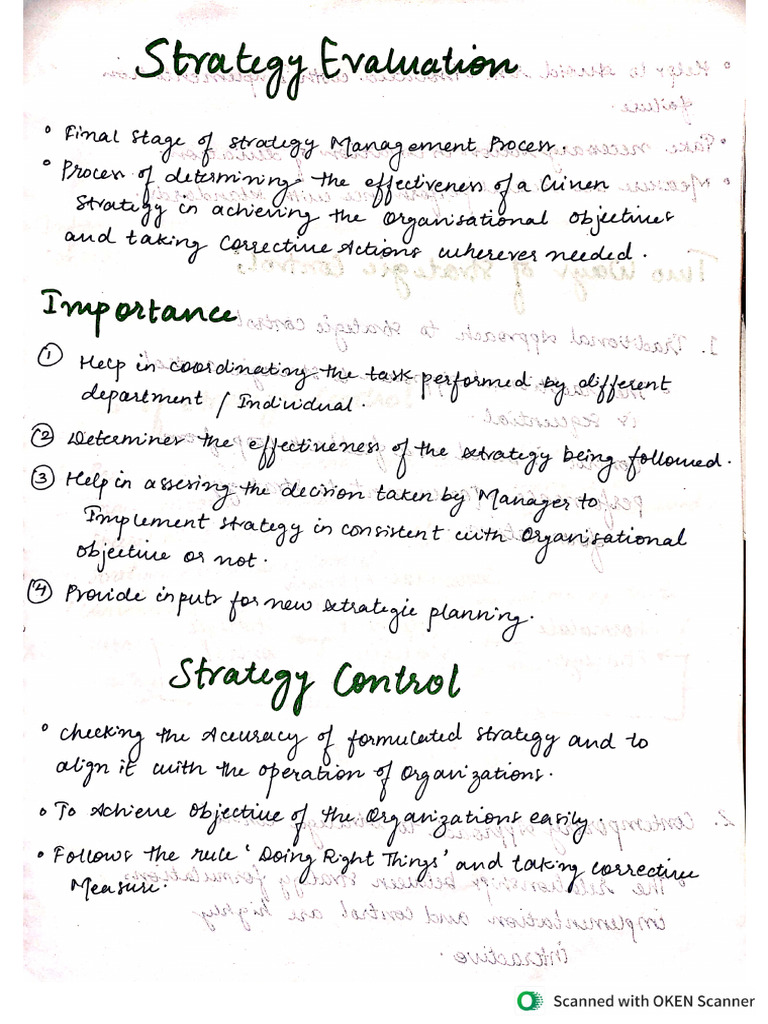 Strategy Evaluation
• Final stage of strategy Management Process.
• Process of determining the effectiveness of a Given
Strategy in achieving the Organisational Objectives
and taking Corrective Actions wherever needed.
Importance
① Help in coordinating the task performed by different
department / Individual.
② Determines the effectiveness of the strategy being followed.
③ Help in assesing the decision taken by Manager to
Implement strategy in consistent with Organisational
Objective or not.
④ Provide inputs for new strategic planning.
Strategy Control
• Checking the Accuracy of formulated strategy and to
align it with the operation of Organizations.
• To Achieve Objective of the Organizations easily.
• Follows the rule 'Doing Right Things' and taking corrective
Measure.
Scanned with OKEN Scanner